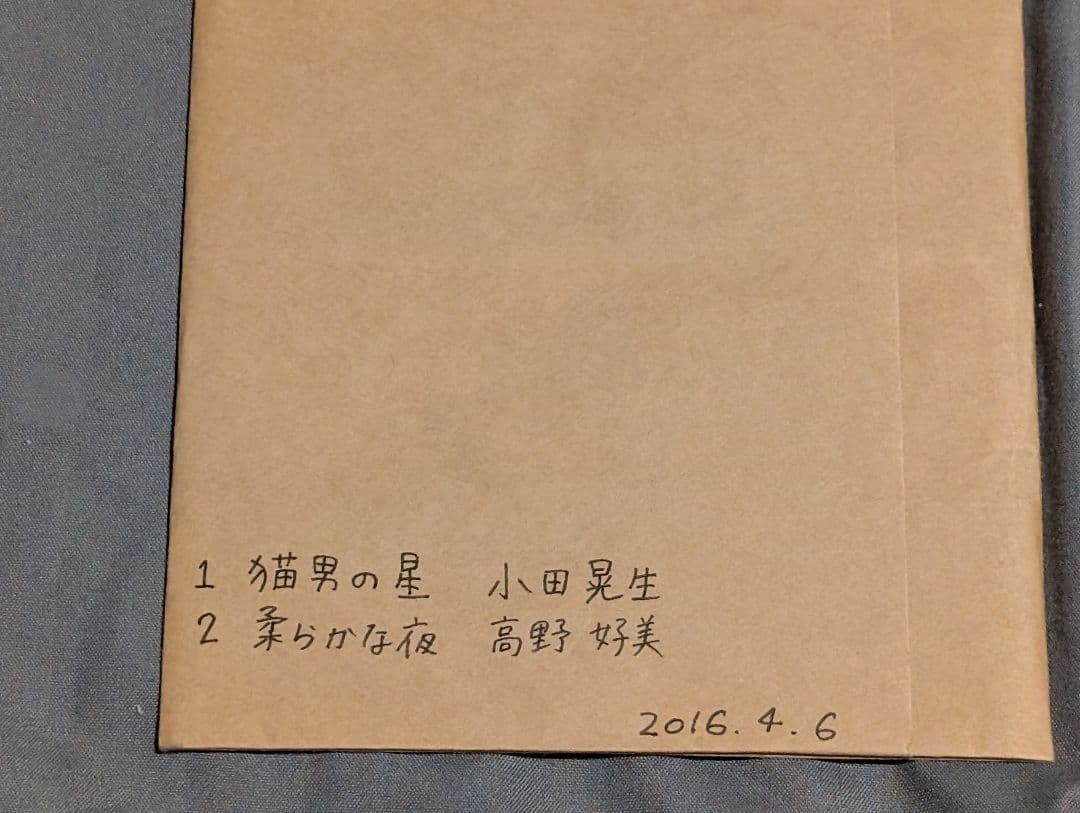 1 猫男の星 小田晃生
2 柔らかな夜 高野 好美
2016.4.6